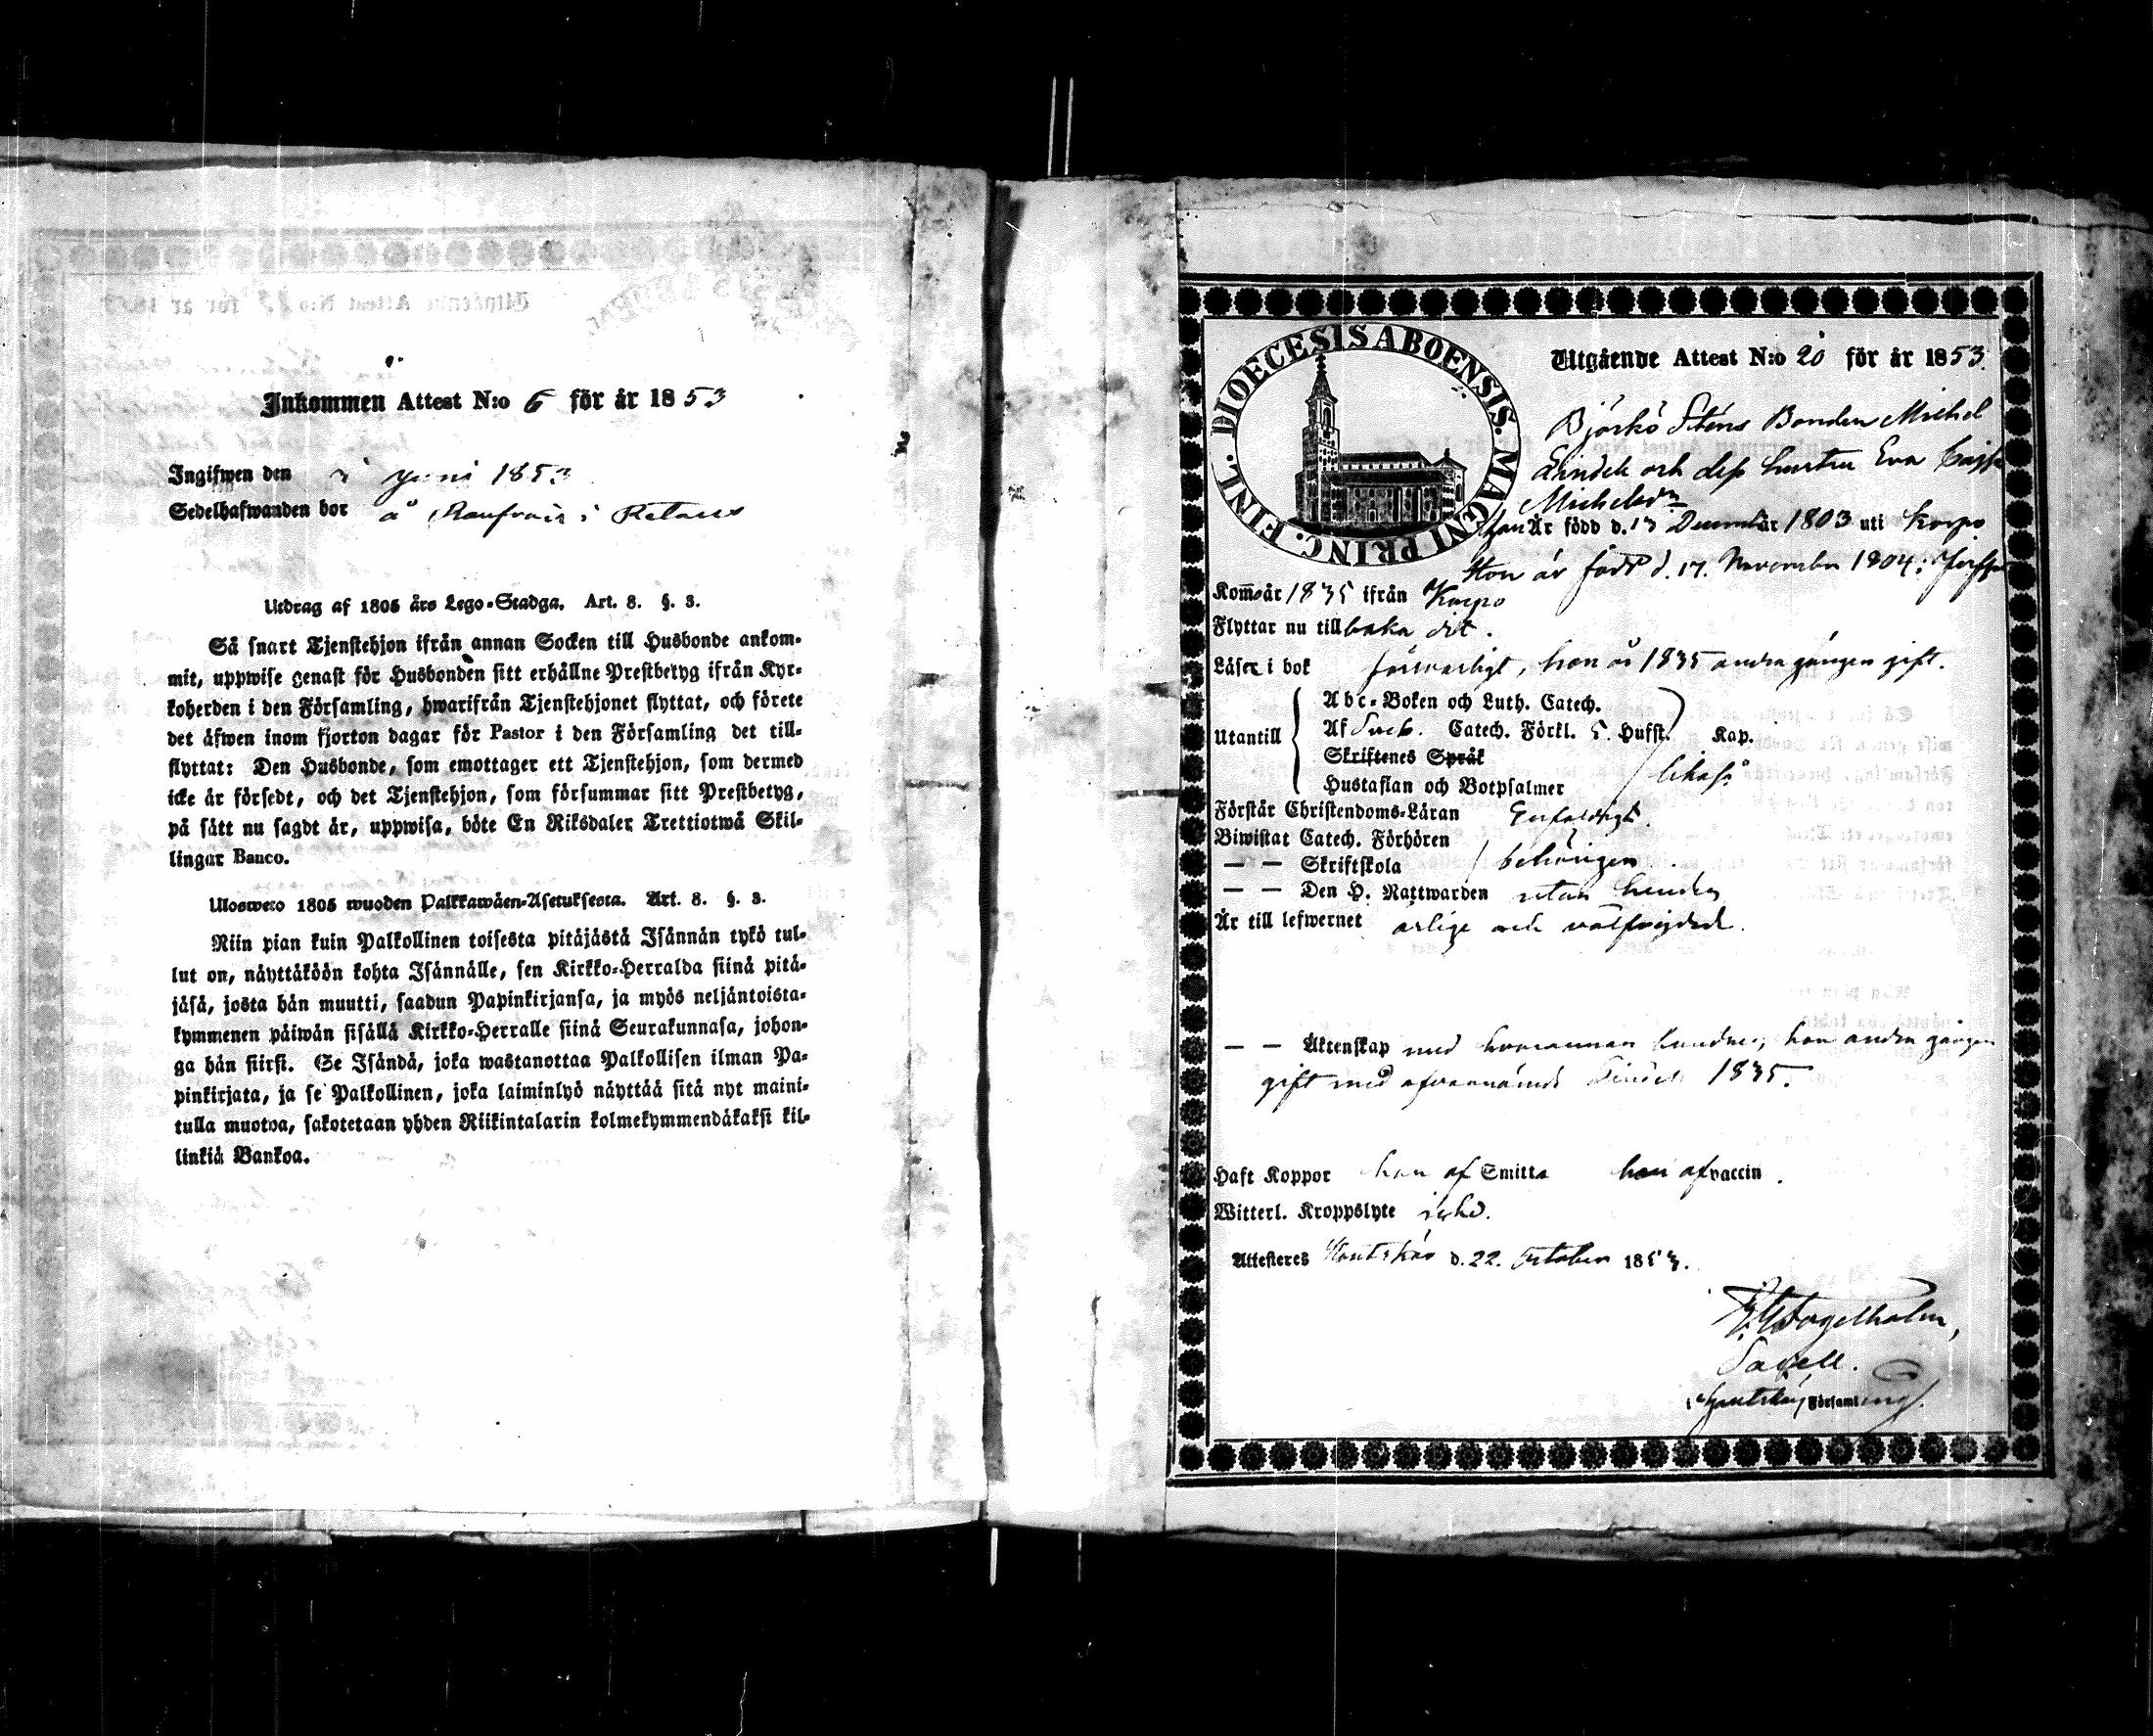 Inkommen Attest N:o 6 för år 1853
Ingifwen den Juni 1853
Sedelhafwanden bor å i Retais
Utdrag af 1805 års Lego-Stadga. Art. 8. §. 3.
Så snart Tjenstehjon ifrån annan Socken till Husbonde ankom-
mit, uppwise genast för Husbonden sitt erhållne Prestbetyg ifrån Kyr-
koherden i den Församling, hwarifrån Tjenstehjonet flyttat, och förete
det äfwen inom fjorton dagar för Pastor i den Församling det till-
flyttat: Den Husbonde, som emottager ett Tjenstehjon, som dermed
icke är försedt, och det Tjenstehjon, som försummar sitt Prestbetyg,
på sätt nu sagdt är, uppwisa, böte En Riksdaler Trettiotwå Skil-
lingar Banco.
Ulosweto 1805 wuoden Palkkawäen-Asetuksesta. Art. 8. §. 3.
Niin pian kuin Palkollinen toisesta pitäjästä Isännän tykö tul-
lut on, näyttäköön kohta Isännälle, sen Kirkko-Herralda siinä pitä-
jäsä, josta hän muutti, saadun Papinkirjansa, ja myös neljäntoista-
kymmenen päiwän sisällä Kirkko-Herralle siinä Seurakunnasa, johon-
ga hän siirsi. Se Isändä, joka wastanottaa Palkollisen ilman Pa-
pinkirjata, ja se Palkollinen, joka laiminlyö näyttää sitä nyt maini-
tulla muotoa, sakotetaan yhden Riikintalarin kolmekymmendäkaksi kil-
linkiä Bankoa.
DIOECESIS ABOENSIS. MAGNI PRINC. FINL.
Utgående Attest N:o 20 för år 1853.
Björkö Sténs Bonden Michel
Lindek och dess hustru Eva Cajsa
Michelsdr
Han Är född d. 13 Decemb år 1803 uti Korpo
Hon är född d. 17. November 1804 i
Kom år 1835 ifrån Korpo
Flyttar nu tillbaka dit.
Läser i bok försvarligt, hon år 1835 andra gången gift.
Utantill
Abc-Boken och Luth. Catech.
Af Sveb. Catech. Förkl. 5. Hufst. Kap.
Skriftenes Språk
Hustaflan och Botpsalmer likaså
Förstår Christendoms-Läran Enfaldigt.
Biwistat Catech. Förhören
— — Skriftskola behörigen
— — Den H. Nattwarden utan hinder
Är till lefwernet ärlige och välfrejdade.
— — Äktenskap med hvarannan bundne, hon andra gången
gift med ofvannämnde Lindek 1835.
Haft Koppor han af Smitta hon af vaccin.
Witterl. Kroppslyte icke.
Attesteres Houtskär d. 22. October 1853.
Fogelholm,
Sacell.
Församling.